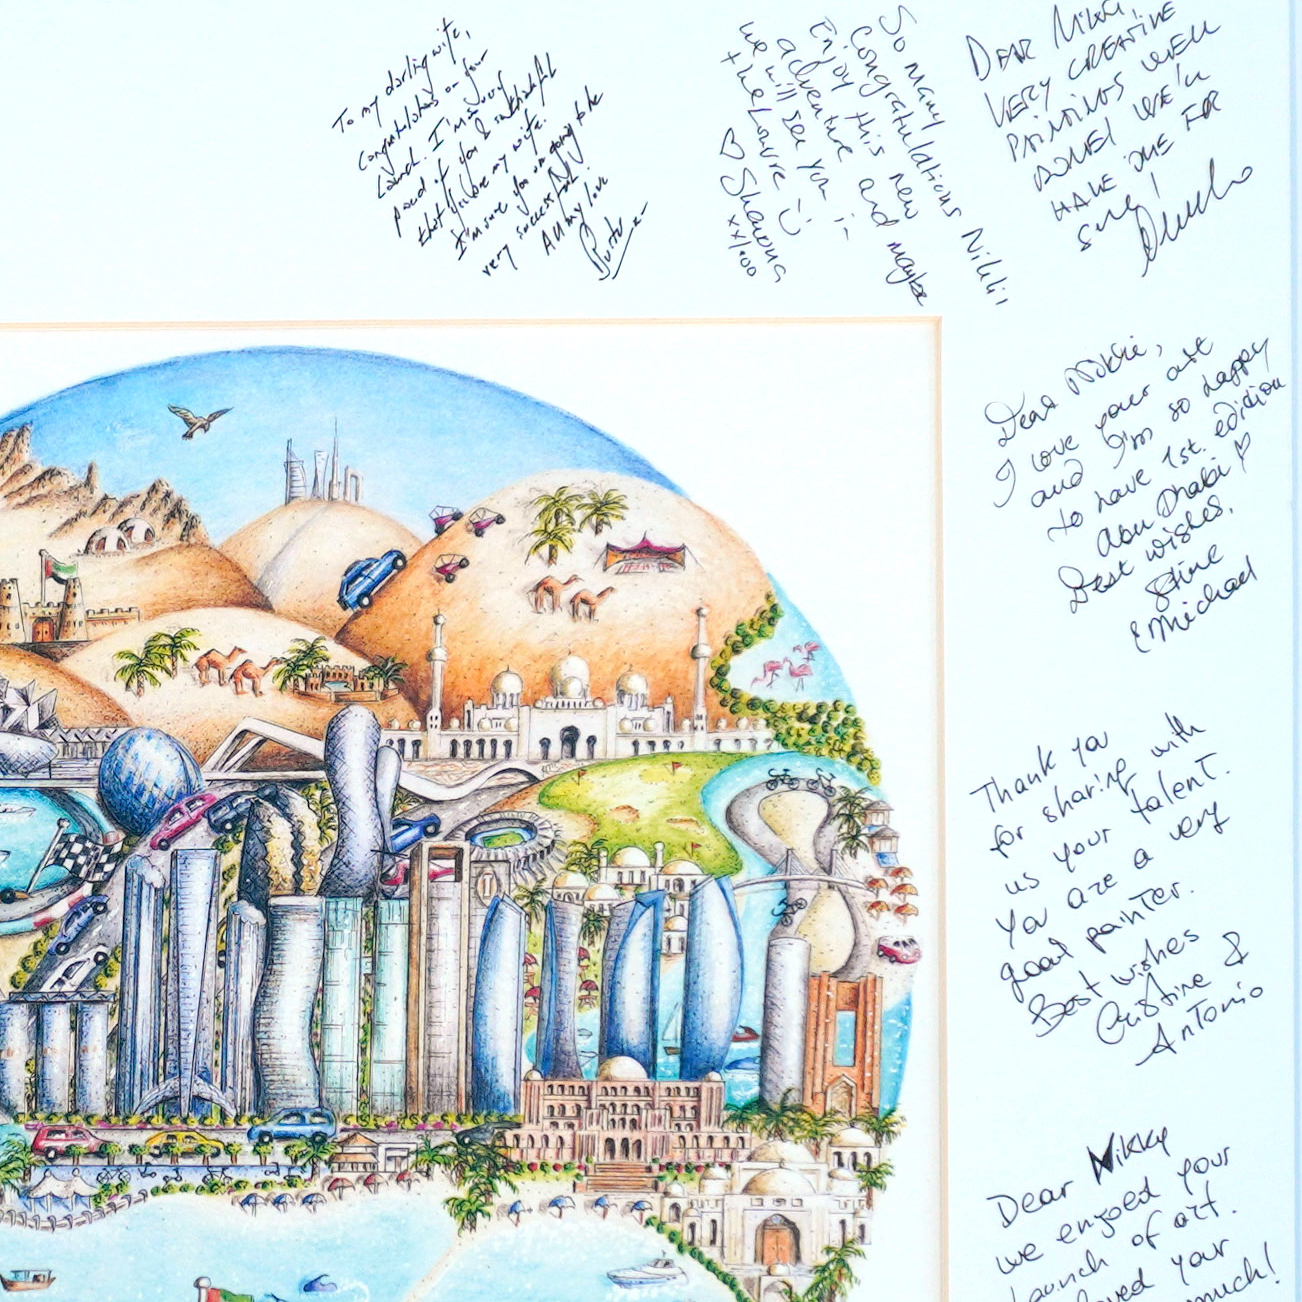 To my darling wife,
Congratulations on your
Launch. I'm so very
proud of you & so thankful
that you are my wife.
I'm sure you are going to be
very successful.
All my love
So many
Congratulations Nikki!
Enjoy this new
adventure and maybe
we will see you in
the Louvre :)
♡ Sharona
xx/ooo
DEAR NIKKI,
VERY CREATIVE
PAINTINGS WELL
DONE! WE'LL
HAVE ONE FOR
SURE!
Dear Nikkie,
I love your art
and I'm so happy
to have 1st. edition
Abu Dhabi ♡
Best wishes,
Stine
& Michael
Thank you
for sharing with
us your talent.
You are a very
good painter.
Best wishes
Cristine &
Antonio
Dear Nikky
we enjoed your
launch of art.
loved your
much!